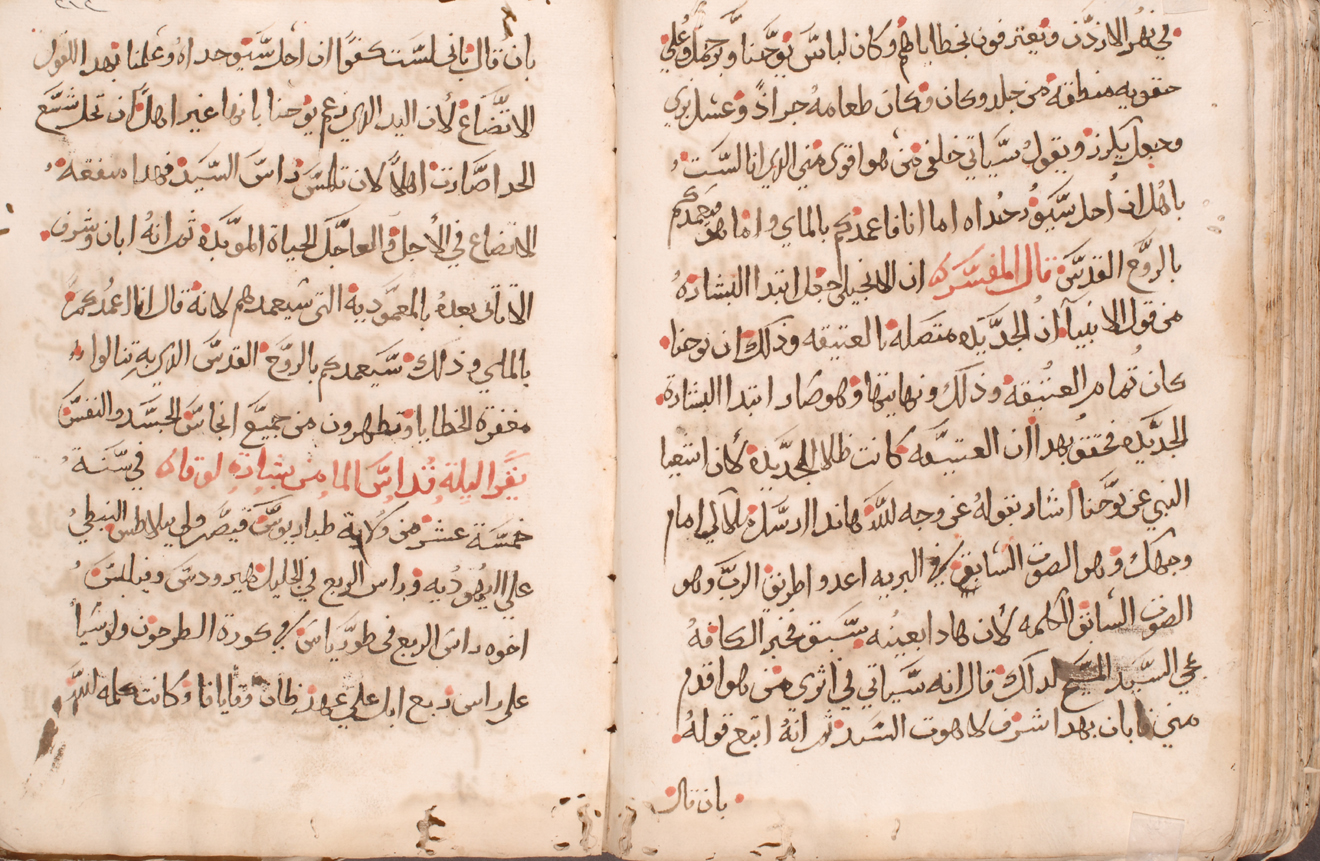 في نهر الاردن ويعترفون بخطاياهم وكان لباس يوحنا وبر جمل وعلي
حقويه منطقة من جلد وكان وكان طعامه جراداً وعسل بري
وجعل يكرز ويقول سياتي خلفي من هو اقوي مني الدي انا لست
باهل ان احل سيور حداه اما انا فاعمدكم بالماي واما هو يعمدكم
بالروح القدس قال المفسر ان الانجيلي جعل ابتدا البشاره
من قول الانبيا ان الجديده متصله بالعتيقه ودلك ان يوحنا
كان تمام العتيقه ودلك ونهايتها وهو صار ابتدا البشاره
الجديده فحقق بهدا ان العتيقه كانت ظلا للجديده لان اشعيا
النبي عن يوحنا اشار بقوله عن وجه لله هاندا ارسل ملاكي امام
وجهك وهو الصوت السابق في البريه اعدوا طريق الرب وهو
الصوت السابق الكلمه لان هدا بعينه سبق مخبر الكافه
عجي السيد المسيح لداك قال انه سياتي في اثري من هو اقدم
مني فابان بهدا شرف لاهوت السيد ثم انه اتبع قوله
بان قال
بان قال ناني لست كفواً ان احل سيور حداه وعلمنا بهدا القول
الاتضاع لان اليد الدي زعم يوحنا بانها غير اهلاً ان تحل شسع
الحدا صارت اهلاً لان تلمس راس السيد فهدا منفعة
الاتضاع في الاجل والعاجل الحياة الموبدة ثم انه ابان وشرف
الاتاتي بعده بالمعمودية التي سيعمدهم لانه قال انا اعمدكم
بالماي ودلك سيعمدكم بالروح القدس الدي به تنالوا
مغفرة الخطايا وتطهرون من جميع انجاس الجسد والنفس
يقرا ليلة قداس الما من بشارة لوقا في سنة
خمسة عشر من ولاية طباريوس قيصر ولي بيلاطس النبطي
علي اليهوديه وراس الربع في الجليل هيرودس وفيلبس
اخوه راس الربع في طورياس في كورة الطرخون ولوسيا
علي راس ربع ابل علي عهد وقايافا وكانت كلمه لله